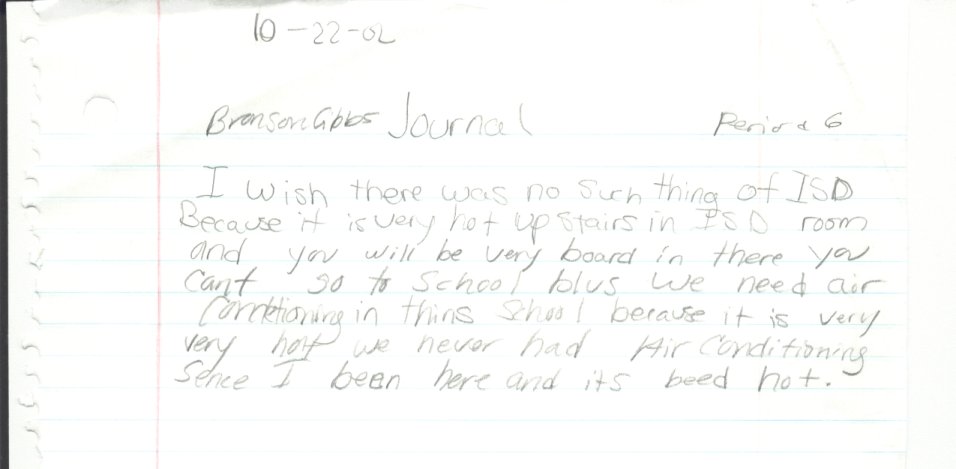 10-22-02
Bronson Gibbs Journal Period 6
I wish there was no such thing of ISD
Because it is very hot up stairs in ISD room
and you will be very board in there you
cant go to School blus we need air
in thins School because it is very
very hot we never had Air Conditioning
Sence I been here and its beed hot.